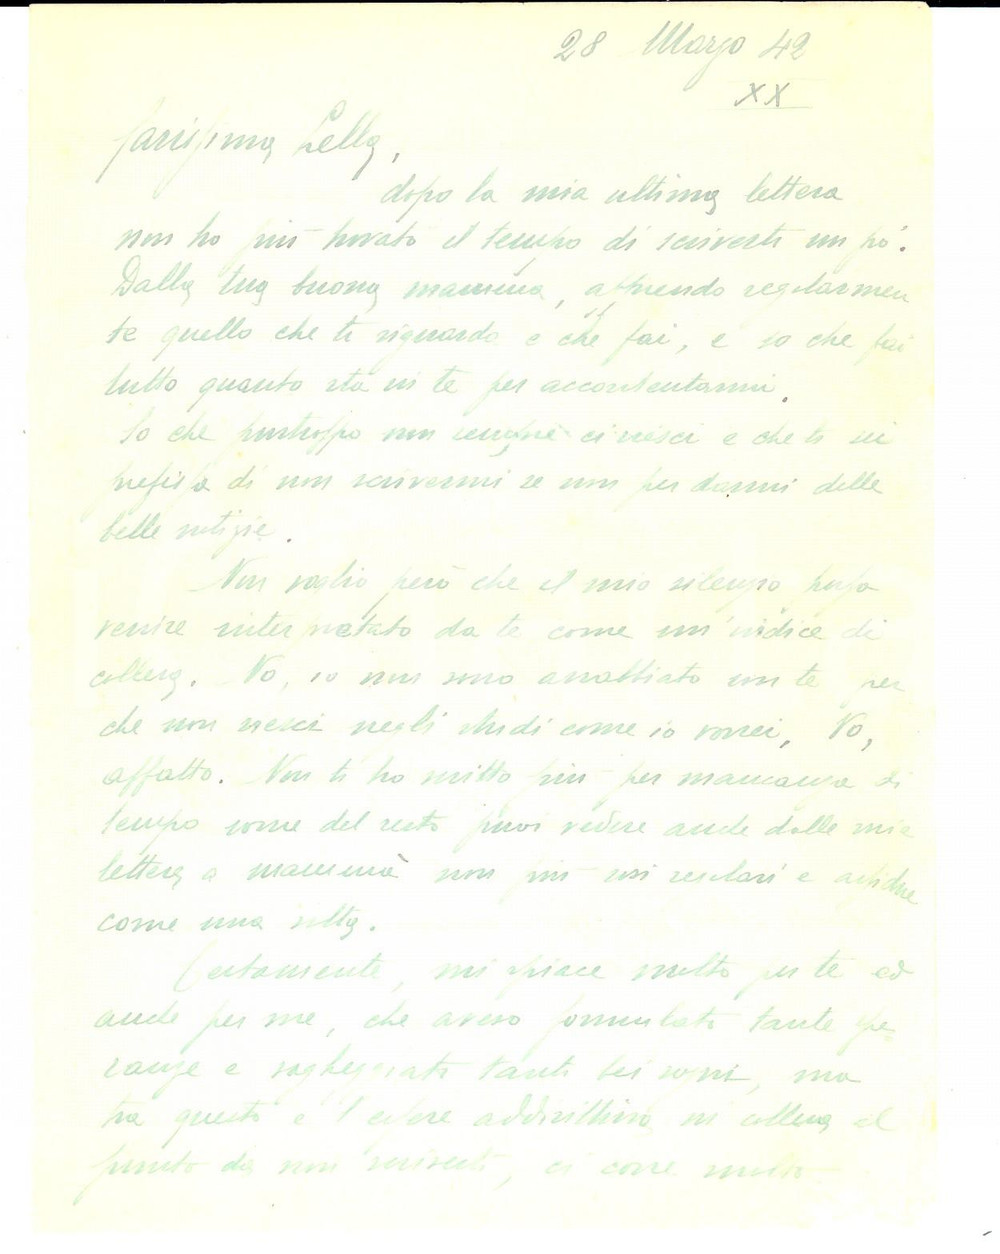 28 Marzo 42
XX
Carissima Lella,
dopo la mia ultima lettera
non ho più trovato il tempo di scriverti un po'.
Dalla tua buona mammina, apprendo regolarmen
te quello che ti riguarda e che fai, e so che fai
tutto quanto sta in te per accontentarmi.
So che purtroppo non sempre ci riesci e che ti sei
prefissa di non scrivermi se non per darmi delle
belle notizie.
Non voglio però che il mio silenzio possa
venire interpretato da te come un'indice di
collera. No, io non sono arrabbiato con te per
che non riesci negli studi come io vorrei, No,
affatto. Non ti ho scritto più per mancanza di
tempo come del resto puoi vedere anche dalle mie
lettere a mammà non più così regolari e assidue
come una volta.
Certamente, mi spiace molto per te ed
anche per me, che avevo formulato tante spe
ranze e vagheggiato tanti bei sogni, ma
tra questo e l'essere addirittura in collera al
punto da non scriverti, ci corre molto